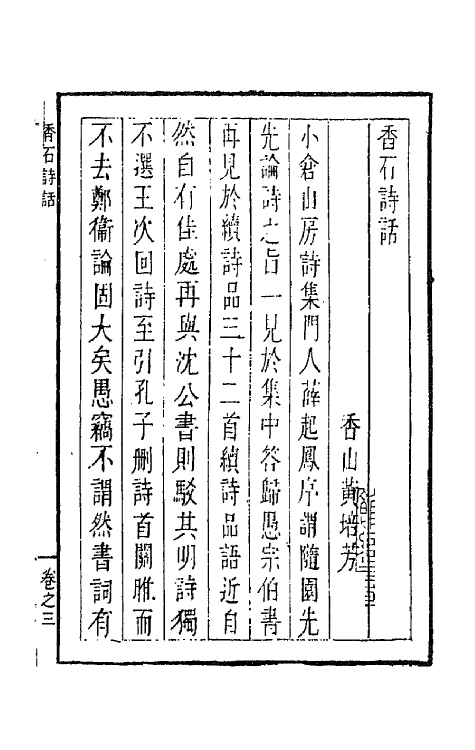 香石詩話
香山黃培芳
小倉山房詩集門人薛起鳳序謂隨園先
先論詩之旨一見於集中答歸愚宗伯書
再見於續詩品三十二首續詩品語近自
然自有佳處再與沈公書則駁其明詩獨
不選王次回詩至引孔子删詩首關雎而
不去鄭衞論固大矣愚竊不謂然書詞有
香石詩話
卷之三